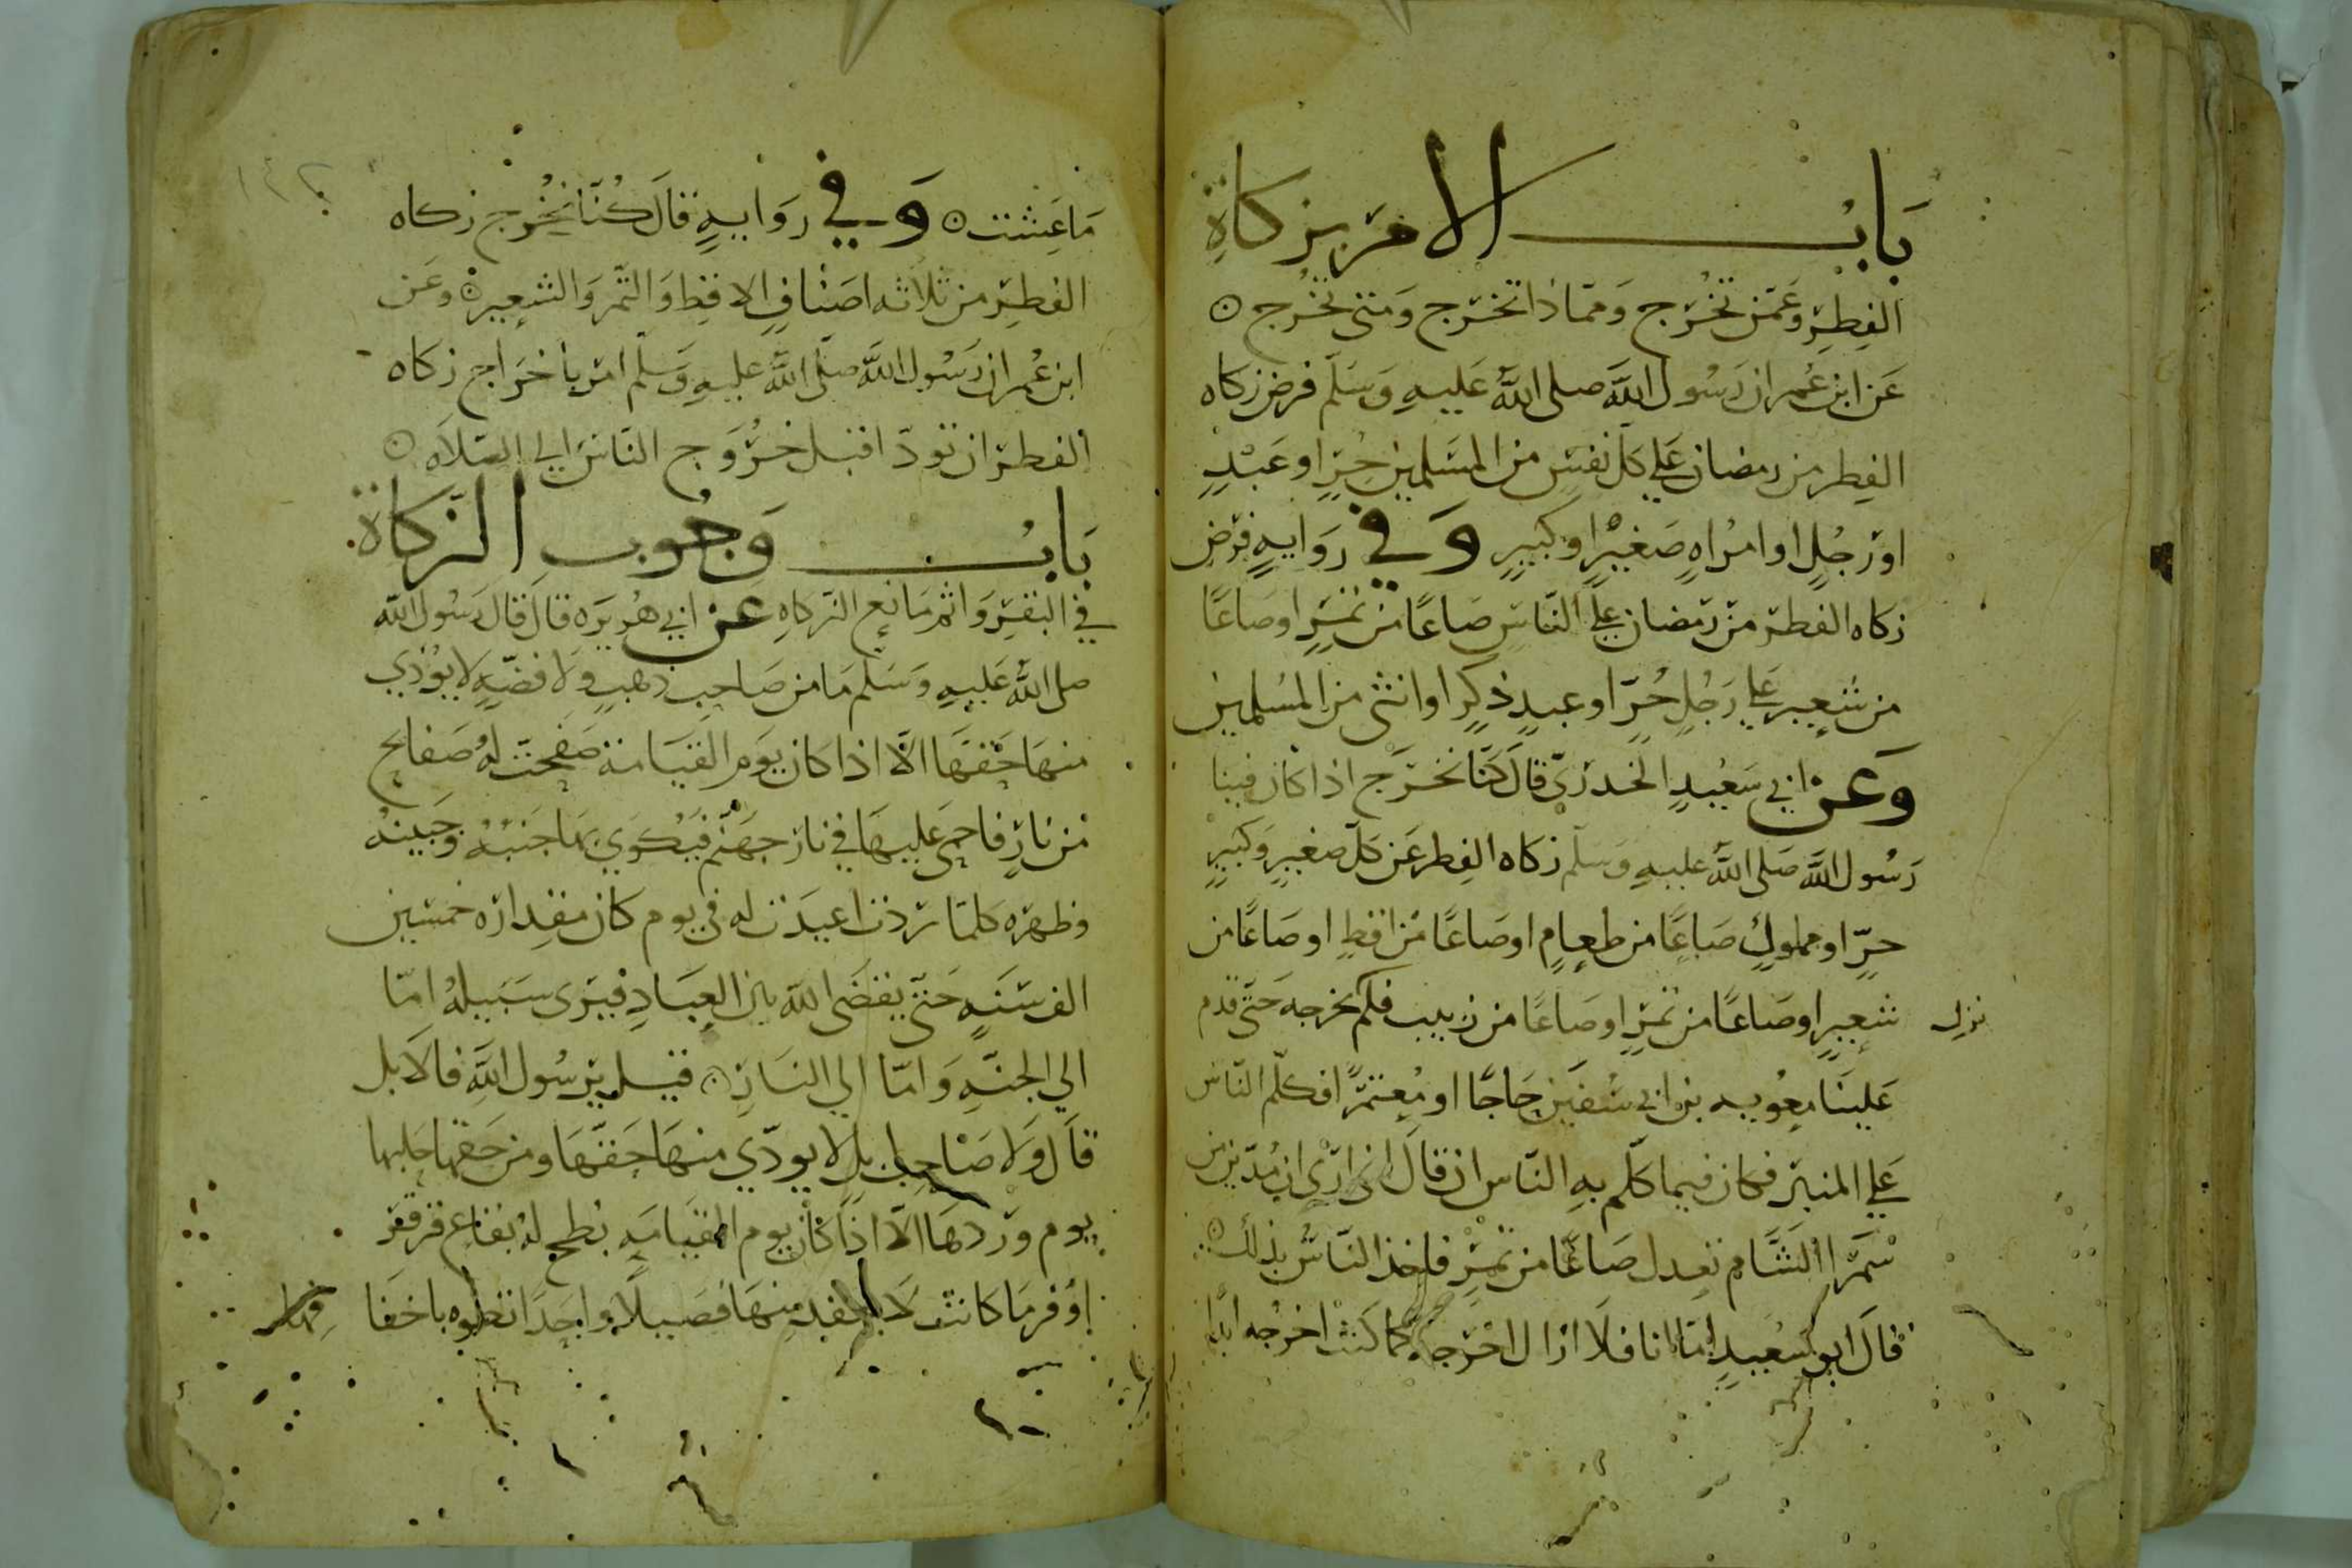 باب الامر بزكاة
الفطر وعمن تخرج ومما ذا تخرج ومتى تخرج
عن ابن عمر ان رسول الله صلى الله عليه وسلم فرض زكاه
الفطر من رمضان علي كل نفس من المسلمين حر او عبد
او رجل او امراه صغير او كبير وفي روايه فرض
زكاه الفطر من رمضان علي الناس صاعا من تمر او صاعا
من شعير علي رجل حر او عبد ذكر او انثى من المسلمين
وعن ابي سعيد الخدري قال كنا نخرج اذا كان فينا
رسول الله صلى الله عليه وسلم زكاه الفطر عن كل صغير وكبير
حر او مملوك صاعا من طعام او صاعا من اقط او صاعا من
شعير او صاعا من تمر او صاعا من زبيب فلم نخرجه حتى قدم
علينا معويه بن ابي سفين حاجا او معتمرا فكلم الناس
علي المنبر فكان فيما كلم به الناس ان قال اني اري ان مدين من
سمرا الشام تعدل صاعا من تمر فاخذ الناس بذلك
قال ابو سعيد اما انا فلا ازال اخرجه كما كنت اخرجه ابدا
١٤٢
ما عشت وفي روايه قال كنا نخرج زكاه
الفطر من ثلاثه اصناف الاقط والتمر والشعير وعن
ابن عمر ان رسول الله صلى الله عليه وسلم امر باخراج زكاه
الفطر ان تودا قبل خروج الناس الي الصلاه
باب وجوب الزكاة
في البقر واثم مانع الزكاه عن ابي هريره قال قال رسول الله
صلى الله عليه وسلم ما من صاحب ذهب ولا فضه لا يؤدي
منها حقها الا اذا كان يوم القيامة صفحت له صفايح
من نار فاحمي عليها في نار جهنم فيكوي بها جنبه وجبينه
وظهره كلما ردت اعيدت له في يوم كان مقداره خمسين
الف سنه حتى يقضى الله بين العباد فيرى سبيله اما
الي الجنه واما الي النار قيل يرسول الله فالابل
قال ولا صاحب ابل لا يودي منها حقها ومن حقها حلبها
يوم وردها الا اذا كان يوم القيامه بطح له بقاع قرقر
اوفر ما كانت لا يفقد منها فصيلا واحدا تطوه باخفا